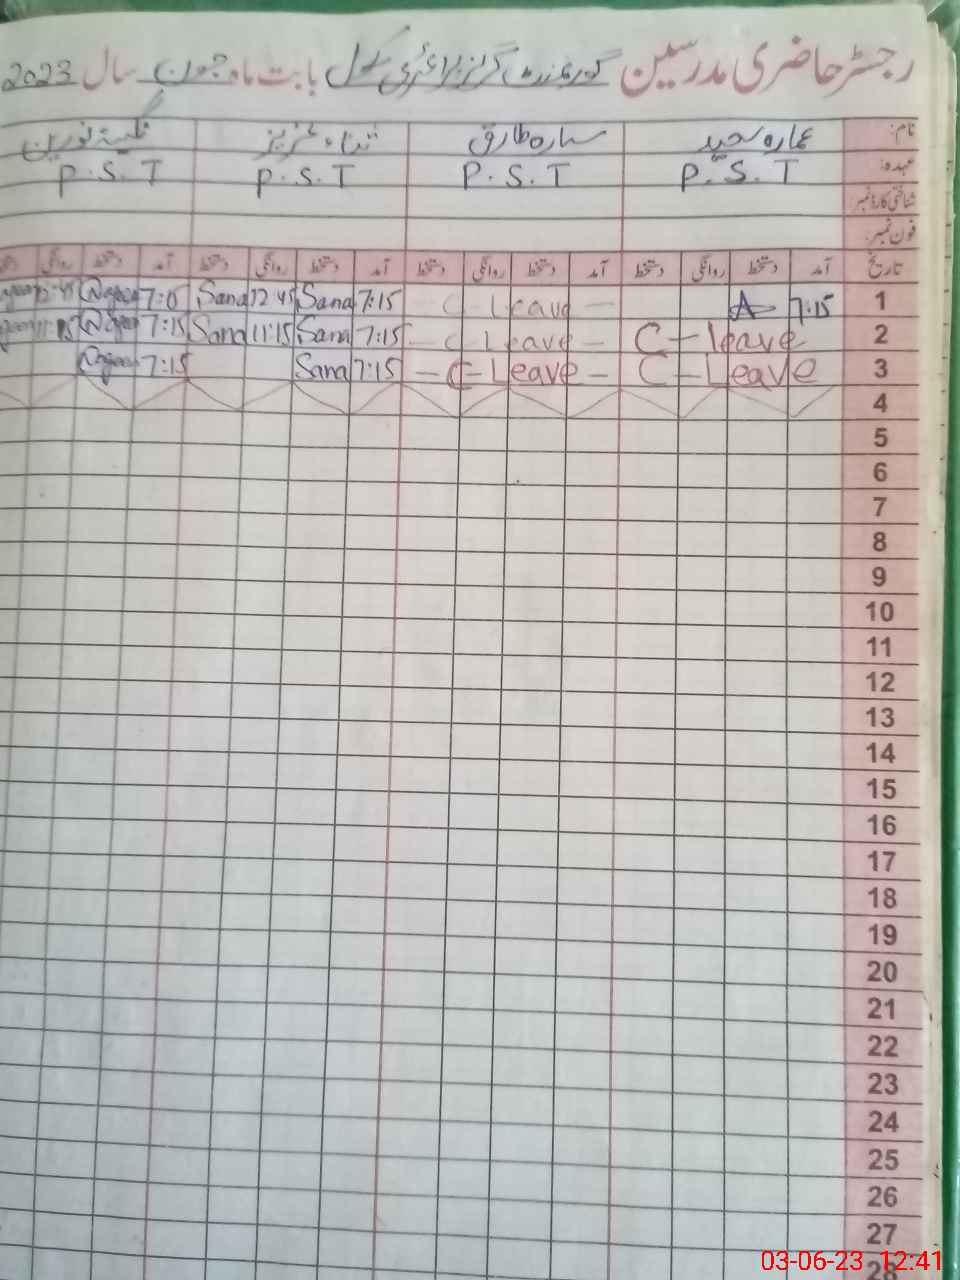 رجسٹر حاضری مدرسین گورنمنٹ گرلز پرائمری سکول بابت ماہ جون سال 2023
نام: عمارہ سعید سارہ طارق ثناء عزیز نگینہ نورین
عہدہ: P.S.T P.S.T P.S.T P.S.T
شناختی کارڈ نمبر:
فون نمبر:
تاریخ آمد دستخط روانگی دستخط آمد دستخط روانگی دستخط آمد دستخط روانگی دستخط آمد دستخط روانگی
1 7:15 A - C - Leave - 7:15 Sana 12:45 Sana
2 C - leave - C - Leave - 7:15 Sana 11:15 Sana 7:15 11:15
3 C - Leave - C - Leave - 7:15 Sana 7:15
4
5
6
7
8
9
10
11
12
13
14
15
16
17
18
19
20
21
22
23
24
25
26
27
28
03-06-23 12:41